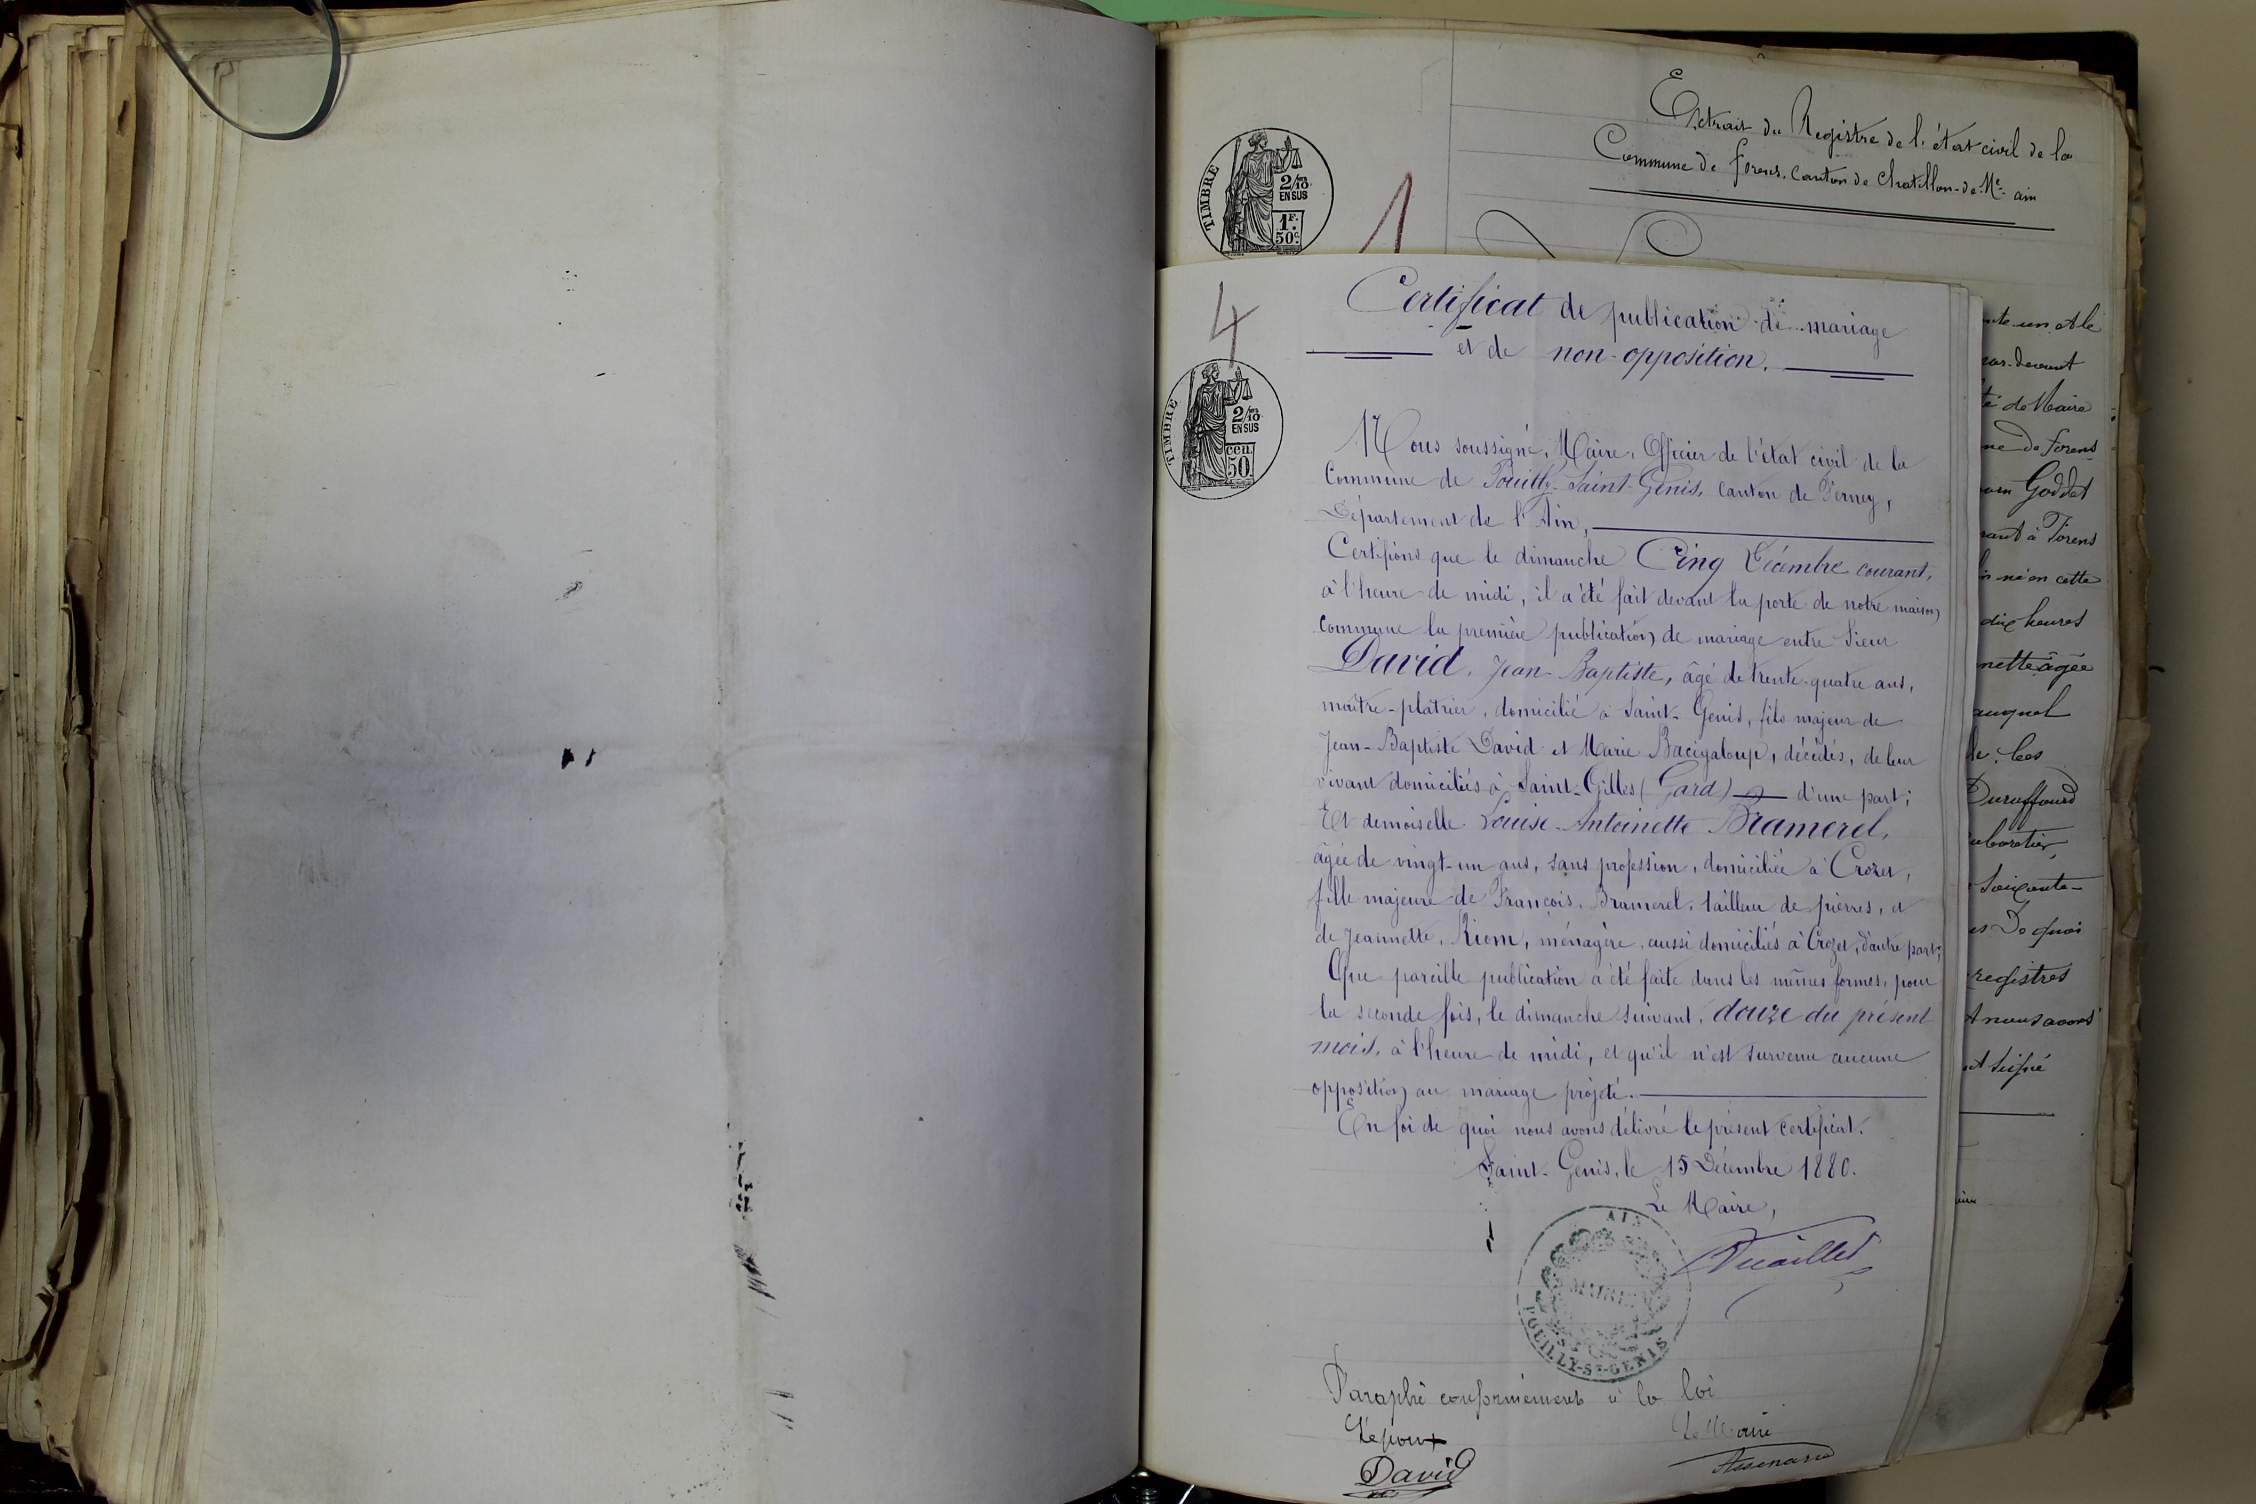 Extrait du Registre de l'état civil de la
Commune de Forens, Canton de Chatillon-de-Mle ain
TIMBRE
2/10
EN SUS
1F.
50c.
1
4
TIMBRE
2/10
EN SUS
cen.
50.
Certificat de publication de mariage
et de non-opposition.
Nous soussigné, Maire, Officier de l'état civil de la
Commune de Pouilly-Saint-Genis, canton de Ferney,
Département de l'Ain,
Certifions que le dimanche Cinq Décembre courant,
à l'heure de midi, il a été fait devant la porte de notre maison
commune la première publication de mariage entre Sieur
David, Jean-Baptiste, âgé de trente-quatre ans,
maître-plâtrier, domicilié à Saint-Genis, fils majeur de
Jean-Baptiste David et Marie Bacigaloup, décédés, de leur
vivant domiciliés à Saint-Gilles (Gard) d'une part;
Et demoiselle Louise-Antoinette Bramerel,
âgée de vingt-un ans, sans profession, domiciliée à Crozet,
fille majeure de François Bramerel, tailleur de pierres, et
de Jeannette Riom, ménagère, aussi domiciliés à Crozet, d'autre part;
Que pareille publication a été faite dans les mêmes formes, pour
la seconde fois, le dimanche suivant, douze du présent
mois, à l'heure de midi, et qu'il n'est survenu aucune
opposition au mariage projeté.
En foi de quoi nous avons délivré le présent certificat.
Saint-Genis, le 15 Décembre 1880.
Le Maire,
AIN
MAIRIE
POUILLY-ST-GENIS
Paraphé conformément à la loi
L'époux
Le Maire
David
un et le
par-devant
de Maire
de Forens
Goddet
à Forens
né en cette
dix heures
nette âgée
auquel
les
Duraffourd
soixante-
De quoi
registres
nous avons
signé